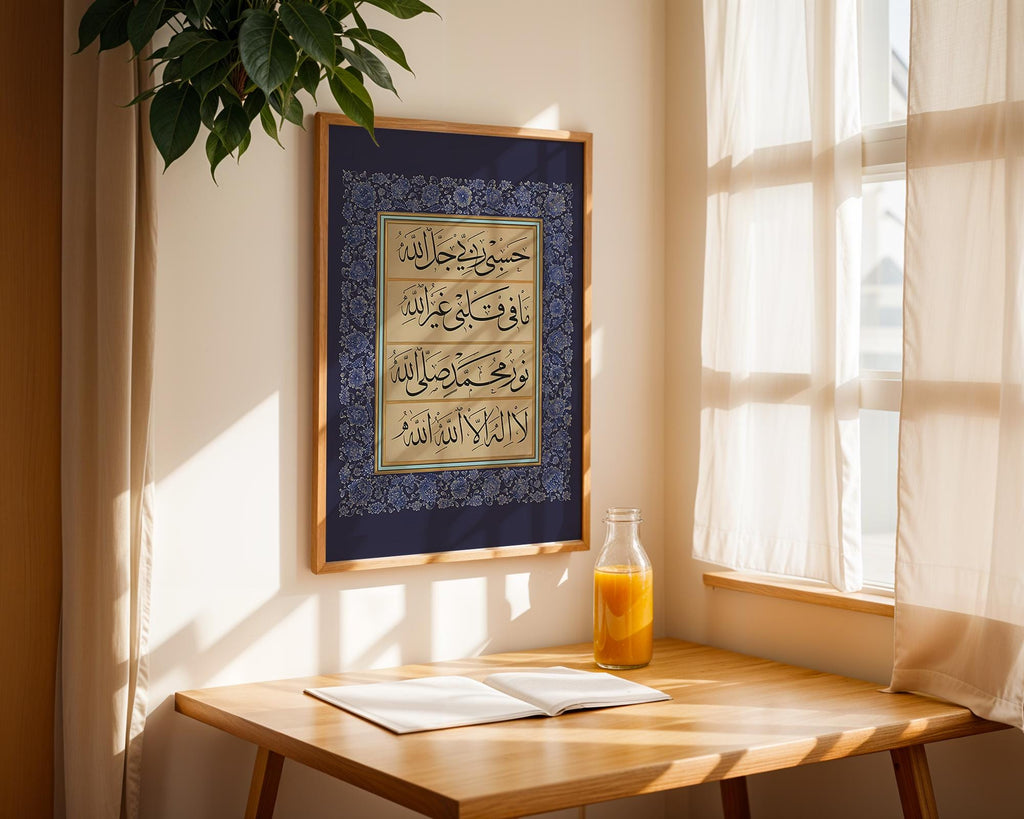 حَسْبِي رَبِّي جَلَّ اللّٰه
مَا فِي قَلْبِي غَيْرُ اللّٰه
نُورُ مُحَمَّد صَلَّى اللّٰه
لَا اِلٰهَ اِلَّا اللّٰهُ اللّٰهُ